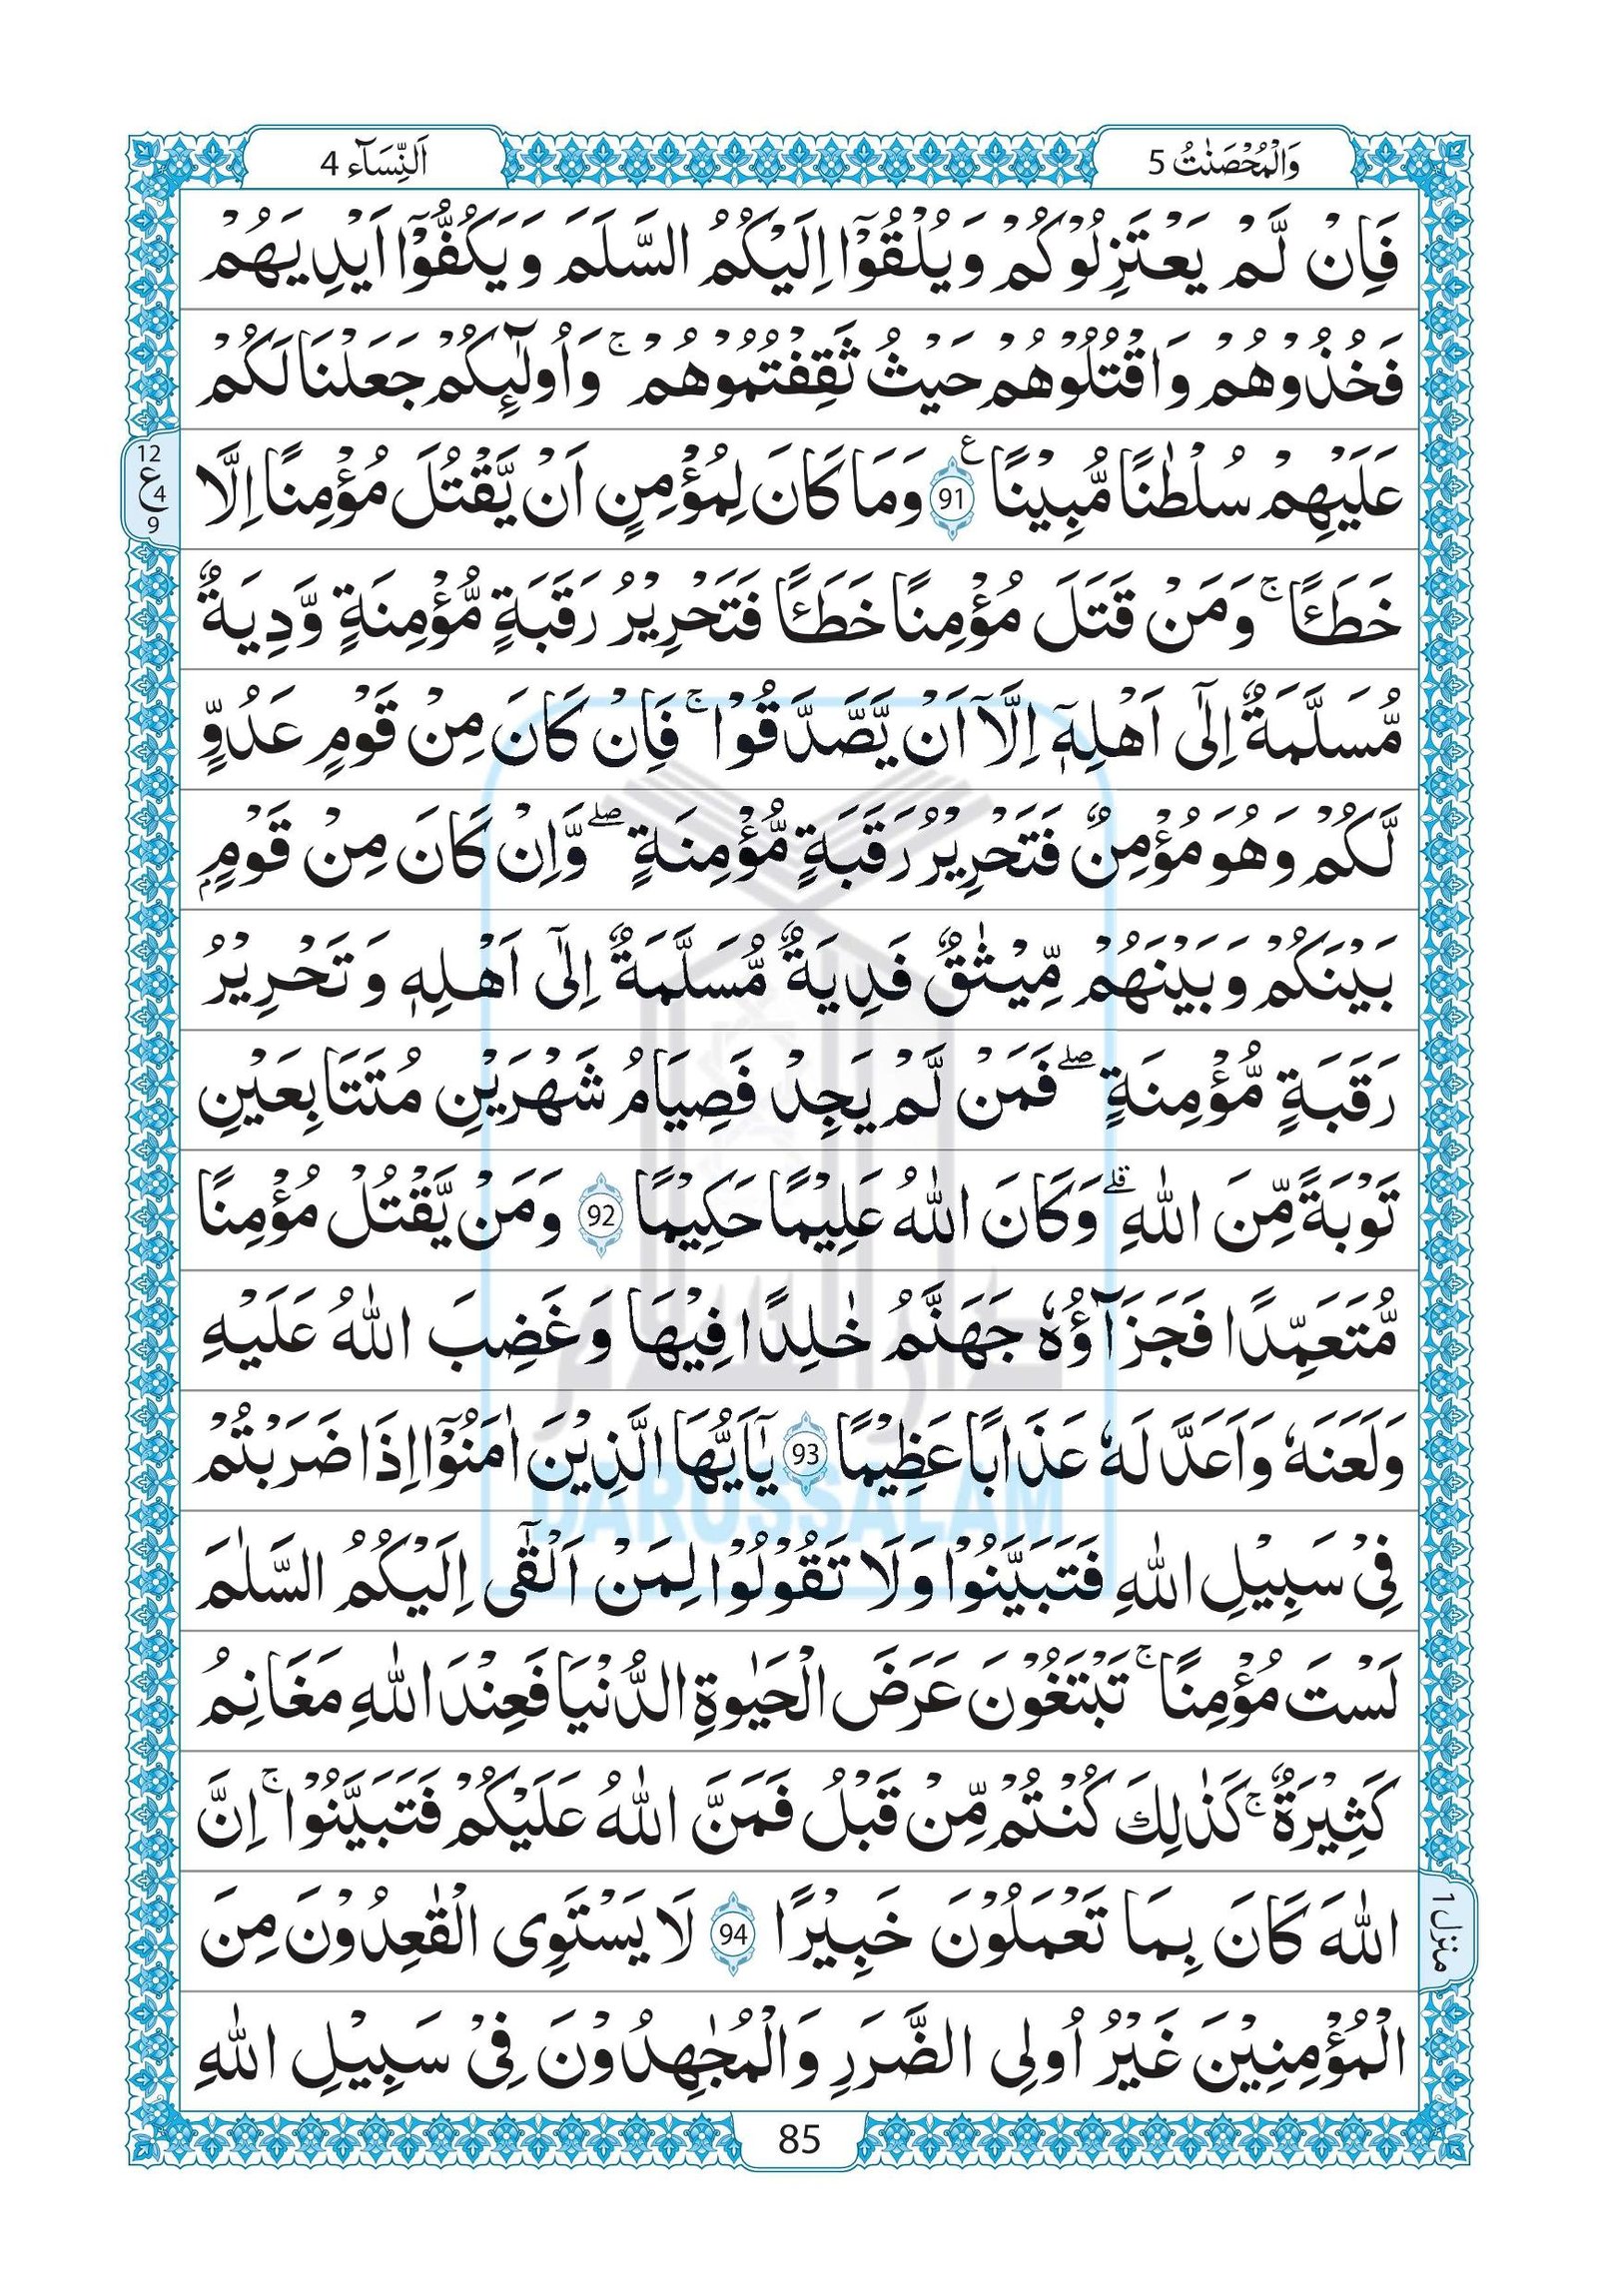 وَالْمُحْصَنٰتُ 5
اَلنِّسَآء 4
فَاِنْ لَّمْ يَعْتَزِلُوْكُمْ وَيُلْقُوْۤا اِلَيْكُمُ السَّلَمَ وَيَكُفُّوْۤا اَيْدِيَهُمْ
فَخُذُوْهُمْ وَاقْتُلُوْهُمْ حَيْثُ ثَقِفْتُمُوْهُمْ ۚ وَاُولٰٓئِكُمْ جَعَلْنَا لَكُمْ
عَلَيْهِمْ سُلْطٰنًا مُّبِيْنًا ۧ 91 وَمَا كَانَ لِمُؤْمِنٍ اَنْ يَّقْتُلَ مُؤْمِنًا اِلَّا
12
ع
4
9
خَطَـًٔا ۚ وَمَنْ قَتَلَ مُؤْمِنًا خَطَـًٔا فَتَحْرِيْرُ رَقَبَةٍ مُّؤْمِنَةٍ وَّدِيَةٌ
مُّسَلَّمَةٌ اِلٰٓى اَهْلِهٖۤ اِلَّاۤ اَنْ يَّصَّدَّقُوْا ۚ فَاِنْ كَانَ مِنْ قَوْمٍ عَدُوٍّ
لَّكُمْ وَهُوَ مُؤْمِنٌ فَتَحْرِيْرُ رَقَبَةٍ مُّؤْمِنَةٍ ۖ وَّاِنْ كَانَ مِنْ قَوْمٍۭ
بَيْنَكُمْ وَبَيْنَهُمْ مِّيْثٰقٌ فَدِيَةٌ مُّسَلَّمَةٌ اِلٰٓى اَهْلِهٖ وَتَحْرِيْرُ
رَقَبَةٍ مُّؤْمِنَةٍ ۖ فَمَنْ لَّمْ يَجِدْ فَصِيَامُ شَهْرَيْنِ مُتَتَابِعَيْنِ
تَوْبَةً مِّنَ اللّٰهِ ۗ وَكَانَ اللّٰهُ عَلِيْمًا حَكِيْمًا 92 وَمَنْ يَّقْتُلْ مُؤْمِنًا
مُّتَعَمِّدًا فَجَزَآؤُهٗ جَهَنَّمُ خٰلِدًا فِيْهَا وَغَضِبَ اللّٰهُ عَلَيْهِ
وَلَعَنَهٗ وَاَعَدَّ لَهٗ عَذَابًا عَظِيْمًا 93 يٰۤاَيُّهَا الَّذِيْنَ اٰمَنُوْۤا اِذَا ضَرَبْتُمْ
فِيْ سَبِيْلِ اللّٰهِ فَتَبَيَّنُوْا وَلَا تَقُوْلُوْا لِمَنْ اَلْقٰٓى اِلَيْكُمُ السَّلٰمَ
لَسْتَ مُؤْمِنًا ۚ تَبْتَغُوْنَ عَرَضَ الْحَيٰوةِ الدُّنْيَا فَعِنْدَ اللّٰهِ مَغَانِمُ
كَثِيْرَةٌ ۚ كَذٰلِكَ كُنْتُمْ مِّنْ قَبْلُ فَمَنَّ اللّٰهُ عَلَيْكُمْ فَتَبَيَّنُوْا ۚ اِنَّ
اللّٰهَ كَانَ بِمَا تَعْمَلُوْنَ خَبِيْرًا 94 لَا يَسْتَوِى الْقٰعِدُوْنَ مِنَ
منزل 1
الْمُؤْمِنِيْنَ غَيْرُ اُولِى الضَّرَرِ وَالْمُجٰهِدُوْنَ فِيْ سَبِيْلِ اللّٰهِ
85
دارالسلام
DARUSSALAM